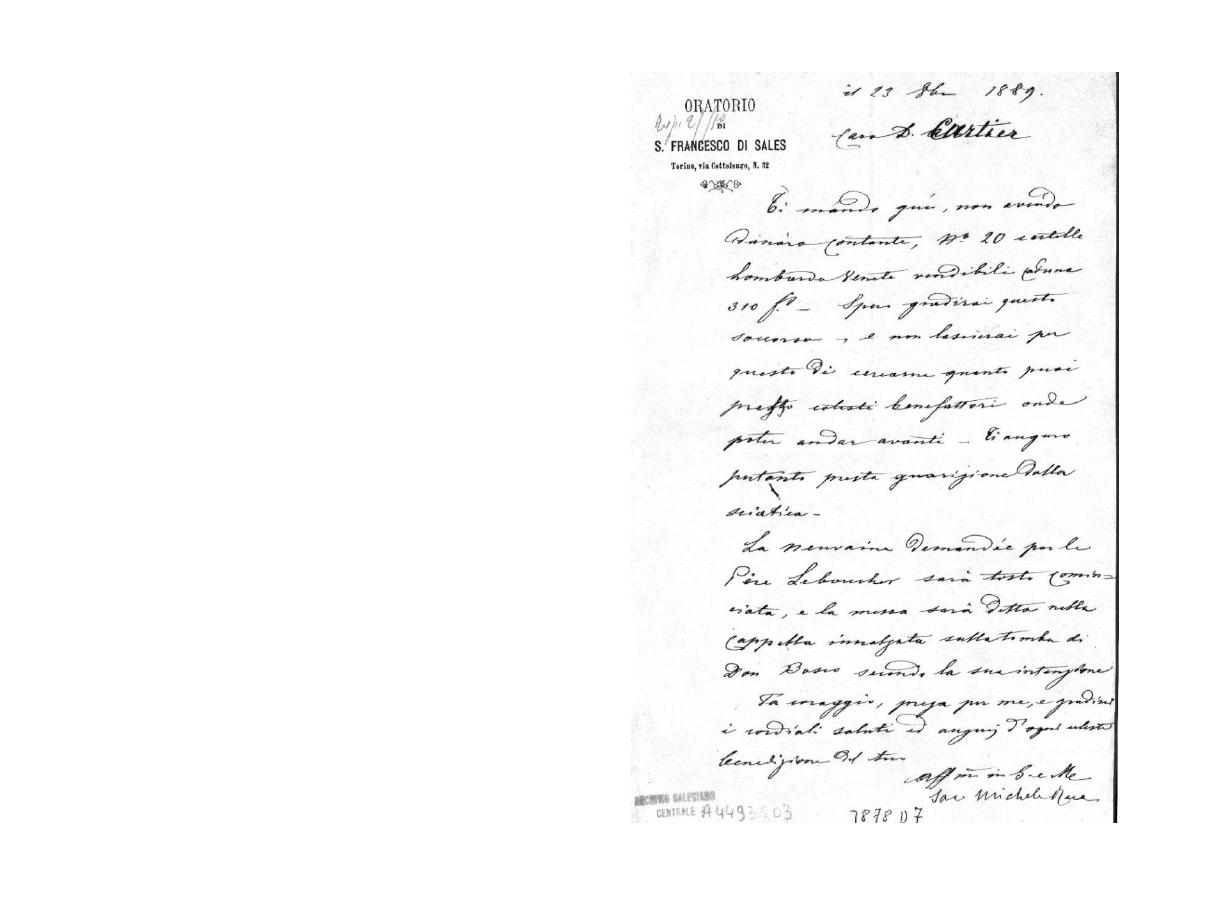 il 23 8bre 1889.
ORATORIO
DI
S. FRANCESCO DI SALES
Torino, via Cottolengo, N. 32
Caro D. Cartier
Ti mando qui, non avendo
danaro contante, N° 20 cartelle
Lombardo Venete vendibili caduna
310 f.i — Spero gradirai questo
soccorso, e non lascierai per
questo di cercarne quanto puoi
presso codesti benefattori onde
poter andar avanti — Ti auguro
pertanto presta guarigione dalla
sciatica —
La neuvaine demandée par le
Père Leboucher sarà tosto comin=
ciata, e la messa sarà detta nella
cappella innalzata sulla tomba di
Don Bosco secondo la sua intenzione
Fa coraggio, prega per me, e gradisci
i cordiali saluti ed augurj d'ogni celeste
benedizione del tuo
Aff.mo in G. e M.
Sac. Michele Rua
ARCHIVIO SALESIANO
CENTRALE A4493503
3878 D7